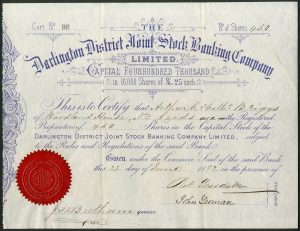 Cert. No. 99
No of Shares 450
THE
Darlington District Joint Stock Banking Company
LIMITED.
CAPITAL FOURHUNDRED THOUSAND
in 16,000 Shares of £25 each.
This is to Certify that Arthur
of Leeds are the Registered
Proprietors of 450 Shares in the Capital Stock of the
DARLINGTON DISTRICT JOINT STOCK BANKING COMPANY LIMITED, subject
to the Rules and Regulations of the said Bank.
Given under the Common Seal of the said Bank
this 23 day of June in presence of
John Yeoman